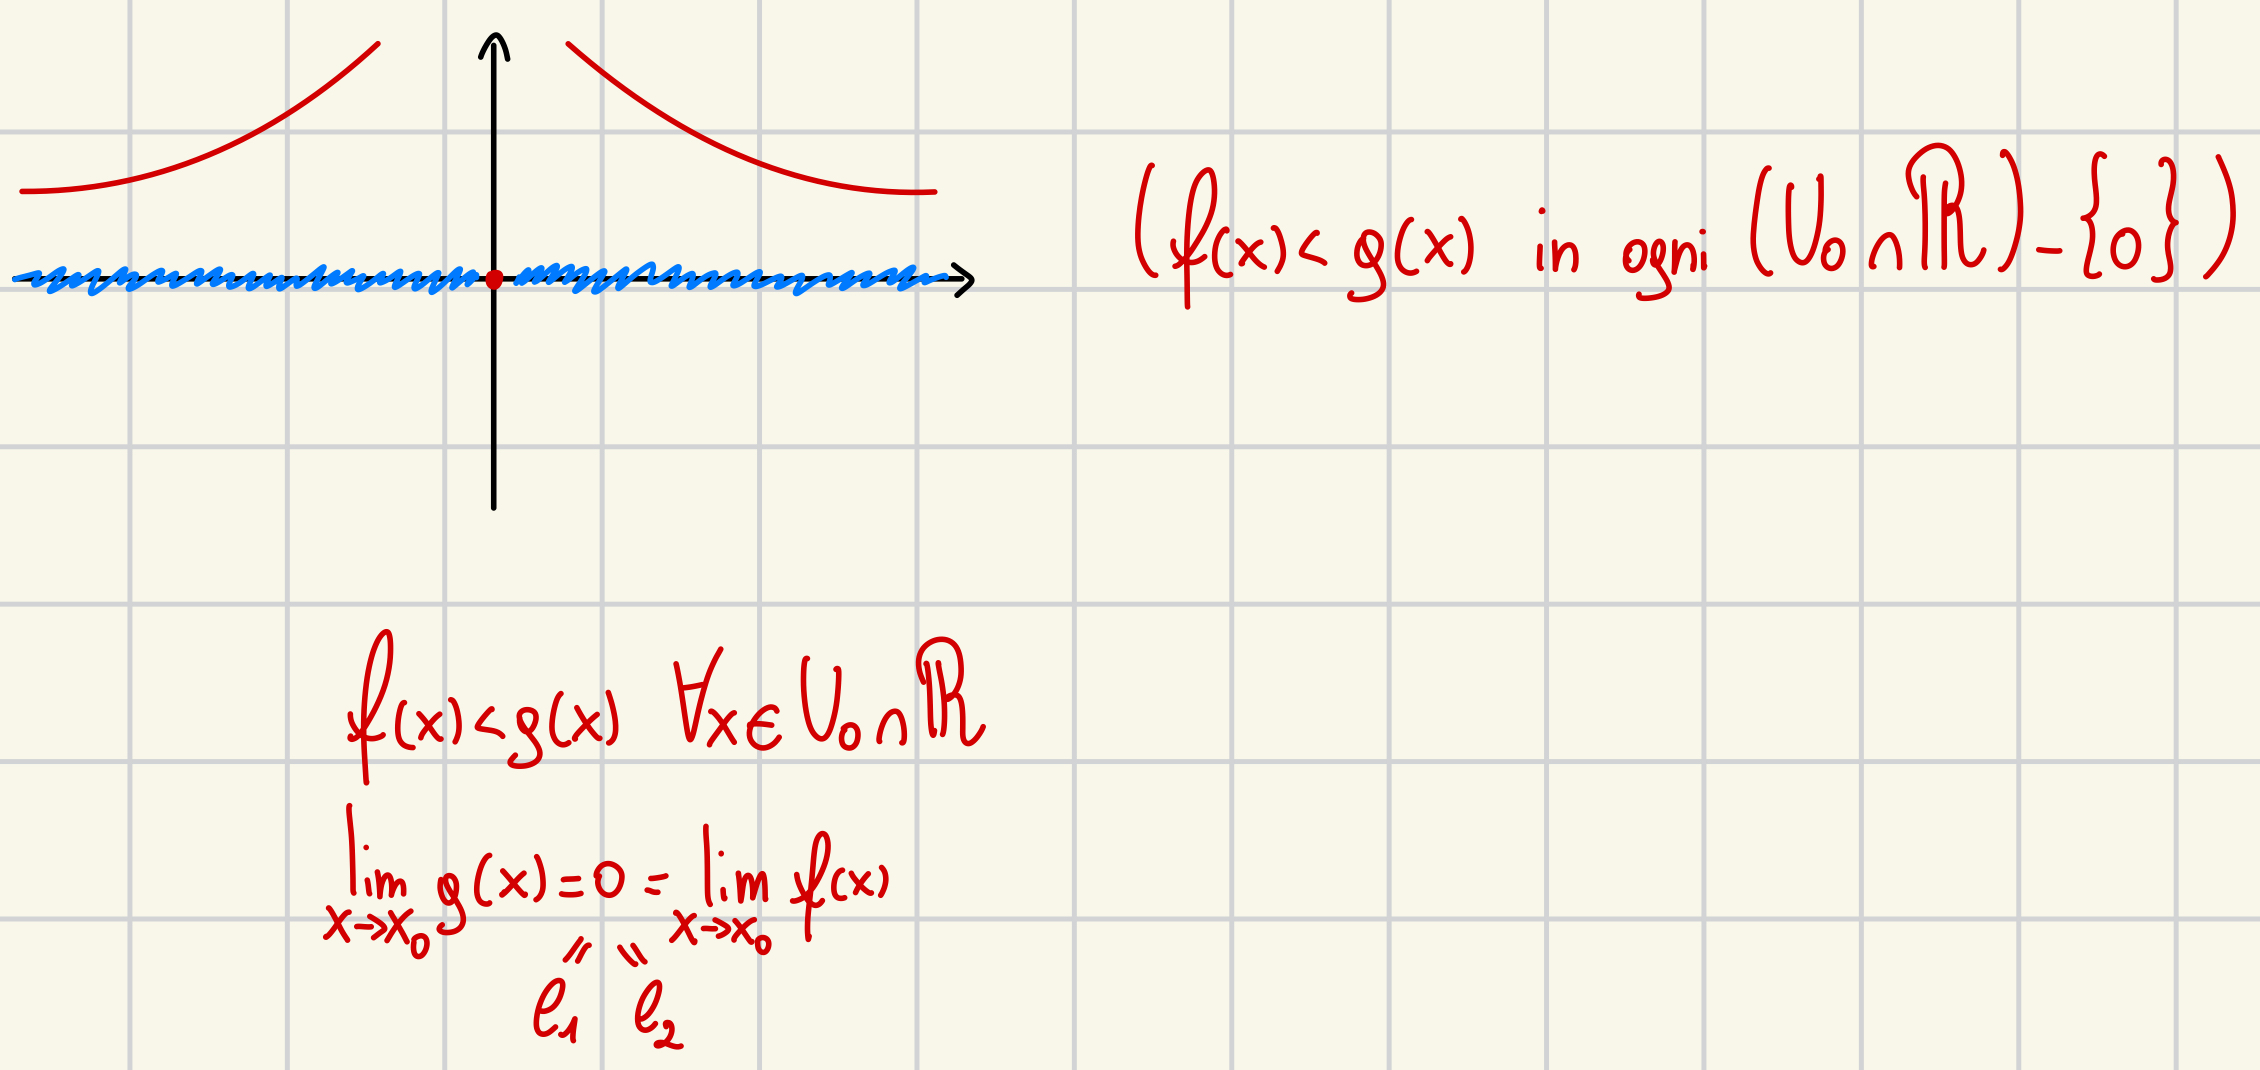 (f(x) < g(x) in ogni (U₀ ∩ ℝ) - {0})
f(x) < g(x) ∀x ∈ U₀ ∩ ℝ
lim g(x) = 0 = lim f(x)
x→x₀ x→x₀
" "
l₁ l₂